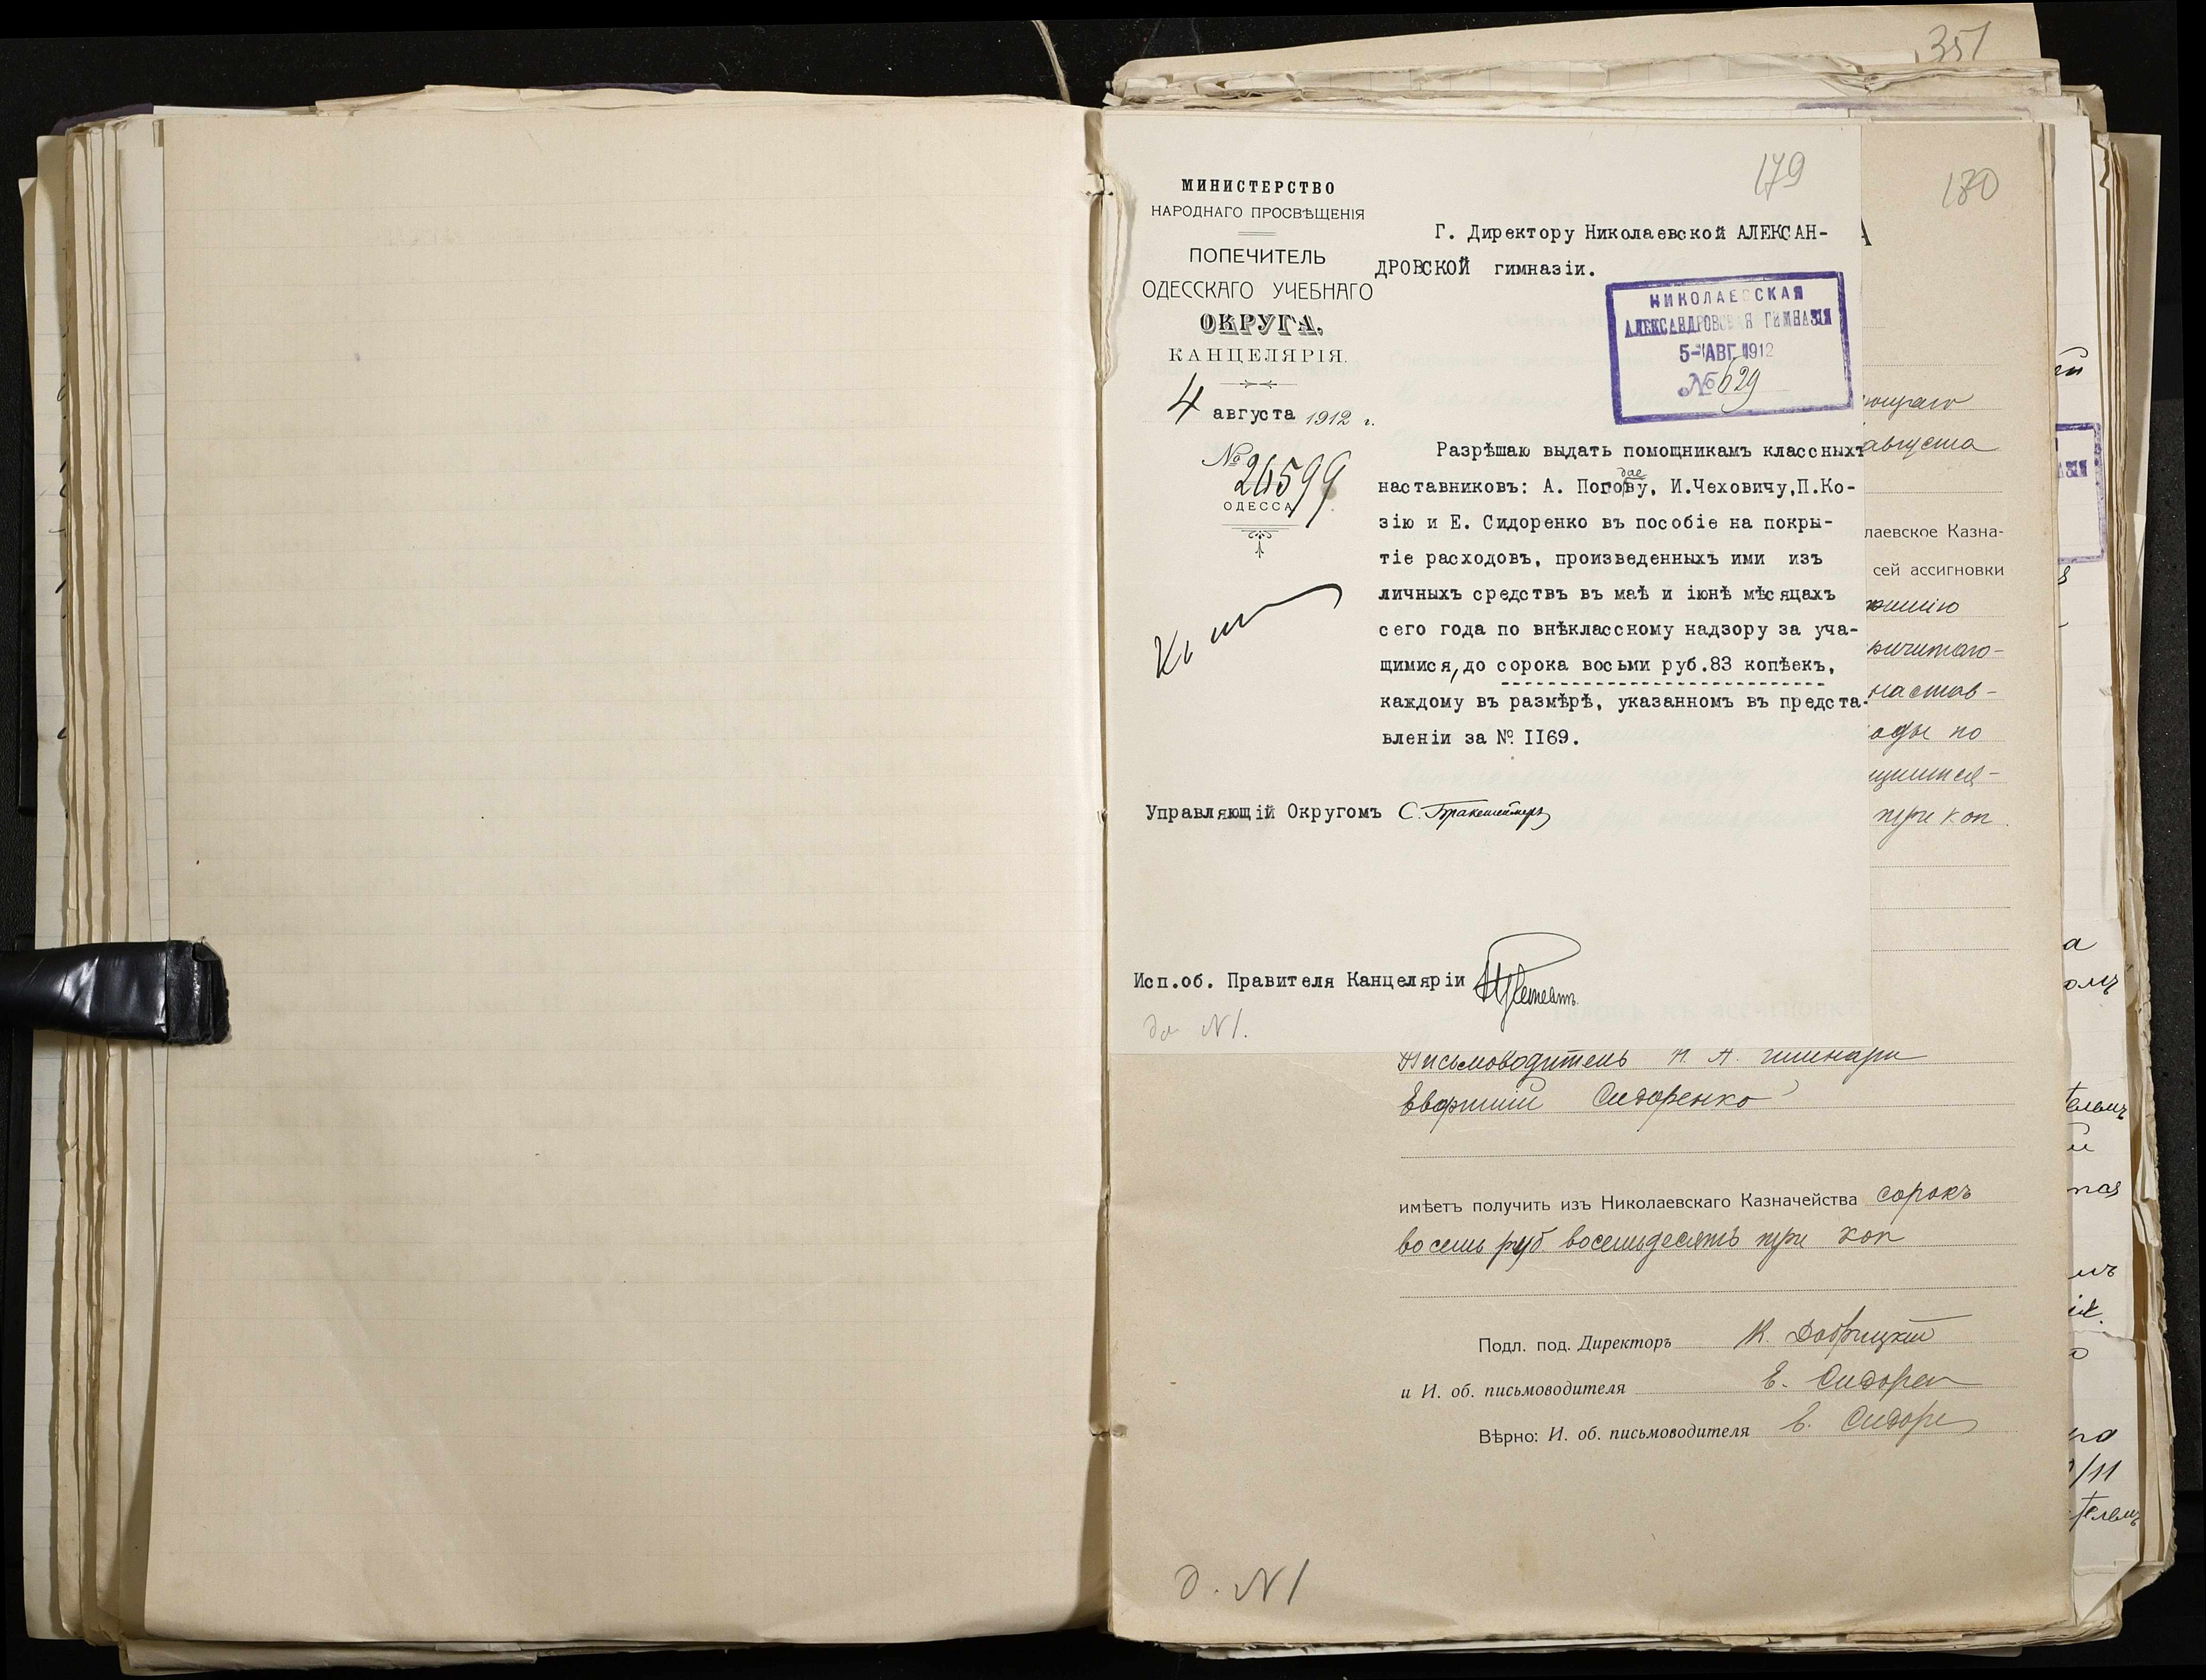 351
179
180
МИНИСТЕРСТВО
НАРОДНАГО ПРОСВѢЩЕНІЯ
ПОПЕЧИТЕЛЬ
ОДЕССКАГО УЧЕБНАГО
ОКРУГА.
КАНЦЕЛЯРІЯ.
4 августа 1912 г.
№ 26599
ОДЕССА
Г. Директору Николаевской АЛЕКСАН-
ДРОВСКОЙ гимназіи.
НИКОЛАЕВСКАЯ
АЛЕКСАНДРОВСКАЯ ГИМНАЗІЯ
5-АВГ 1912
№ 629
Разрѣшаю выдать помощникамъ классныхъ
наставниковъ: А. Погову, И.Чеховичу,П.Ко-
зію и Е. Сидоренко въ пособіе на покры-
тіе расходовъ, произведенныхъ ими изъ
личныхъ средствъ въ маѣ и іюнѣ мѣсяцахъ
сего года по внѣклассному надзору за уча-
щимися, до сорока восьми руб.83 копѣекъ,
каждому въ размѣрѣ, указанномъ въ предста-
вленіи за № II69.
Управляющій Округомъ
Исп.об. Правителя Канцеляріи
до N1.
августа
лаевское Казна-
сей ассигновки
настав-
оды по
три коп.
Письмоводитель
Сидоренко
имѣетъ получить изъ Николаевскаго Казначейства сорокъ
восемь руб. восемьдесятъ три коп
Подл. под. Директоръ
и И. об. письмоводителя Е. Сидорен
Вѣрно: И. об. письмоводителя Е. Сидоре
д. N1